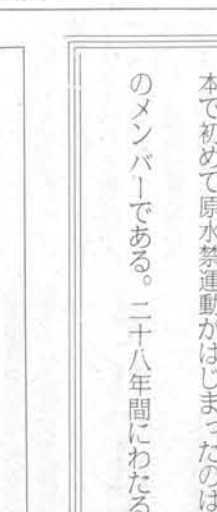 本で初めて原水禁運動がはじまったのは
のメンバーである。二十八年間にわたる